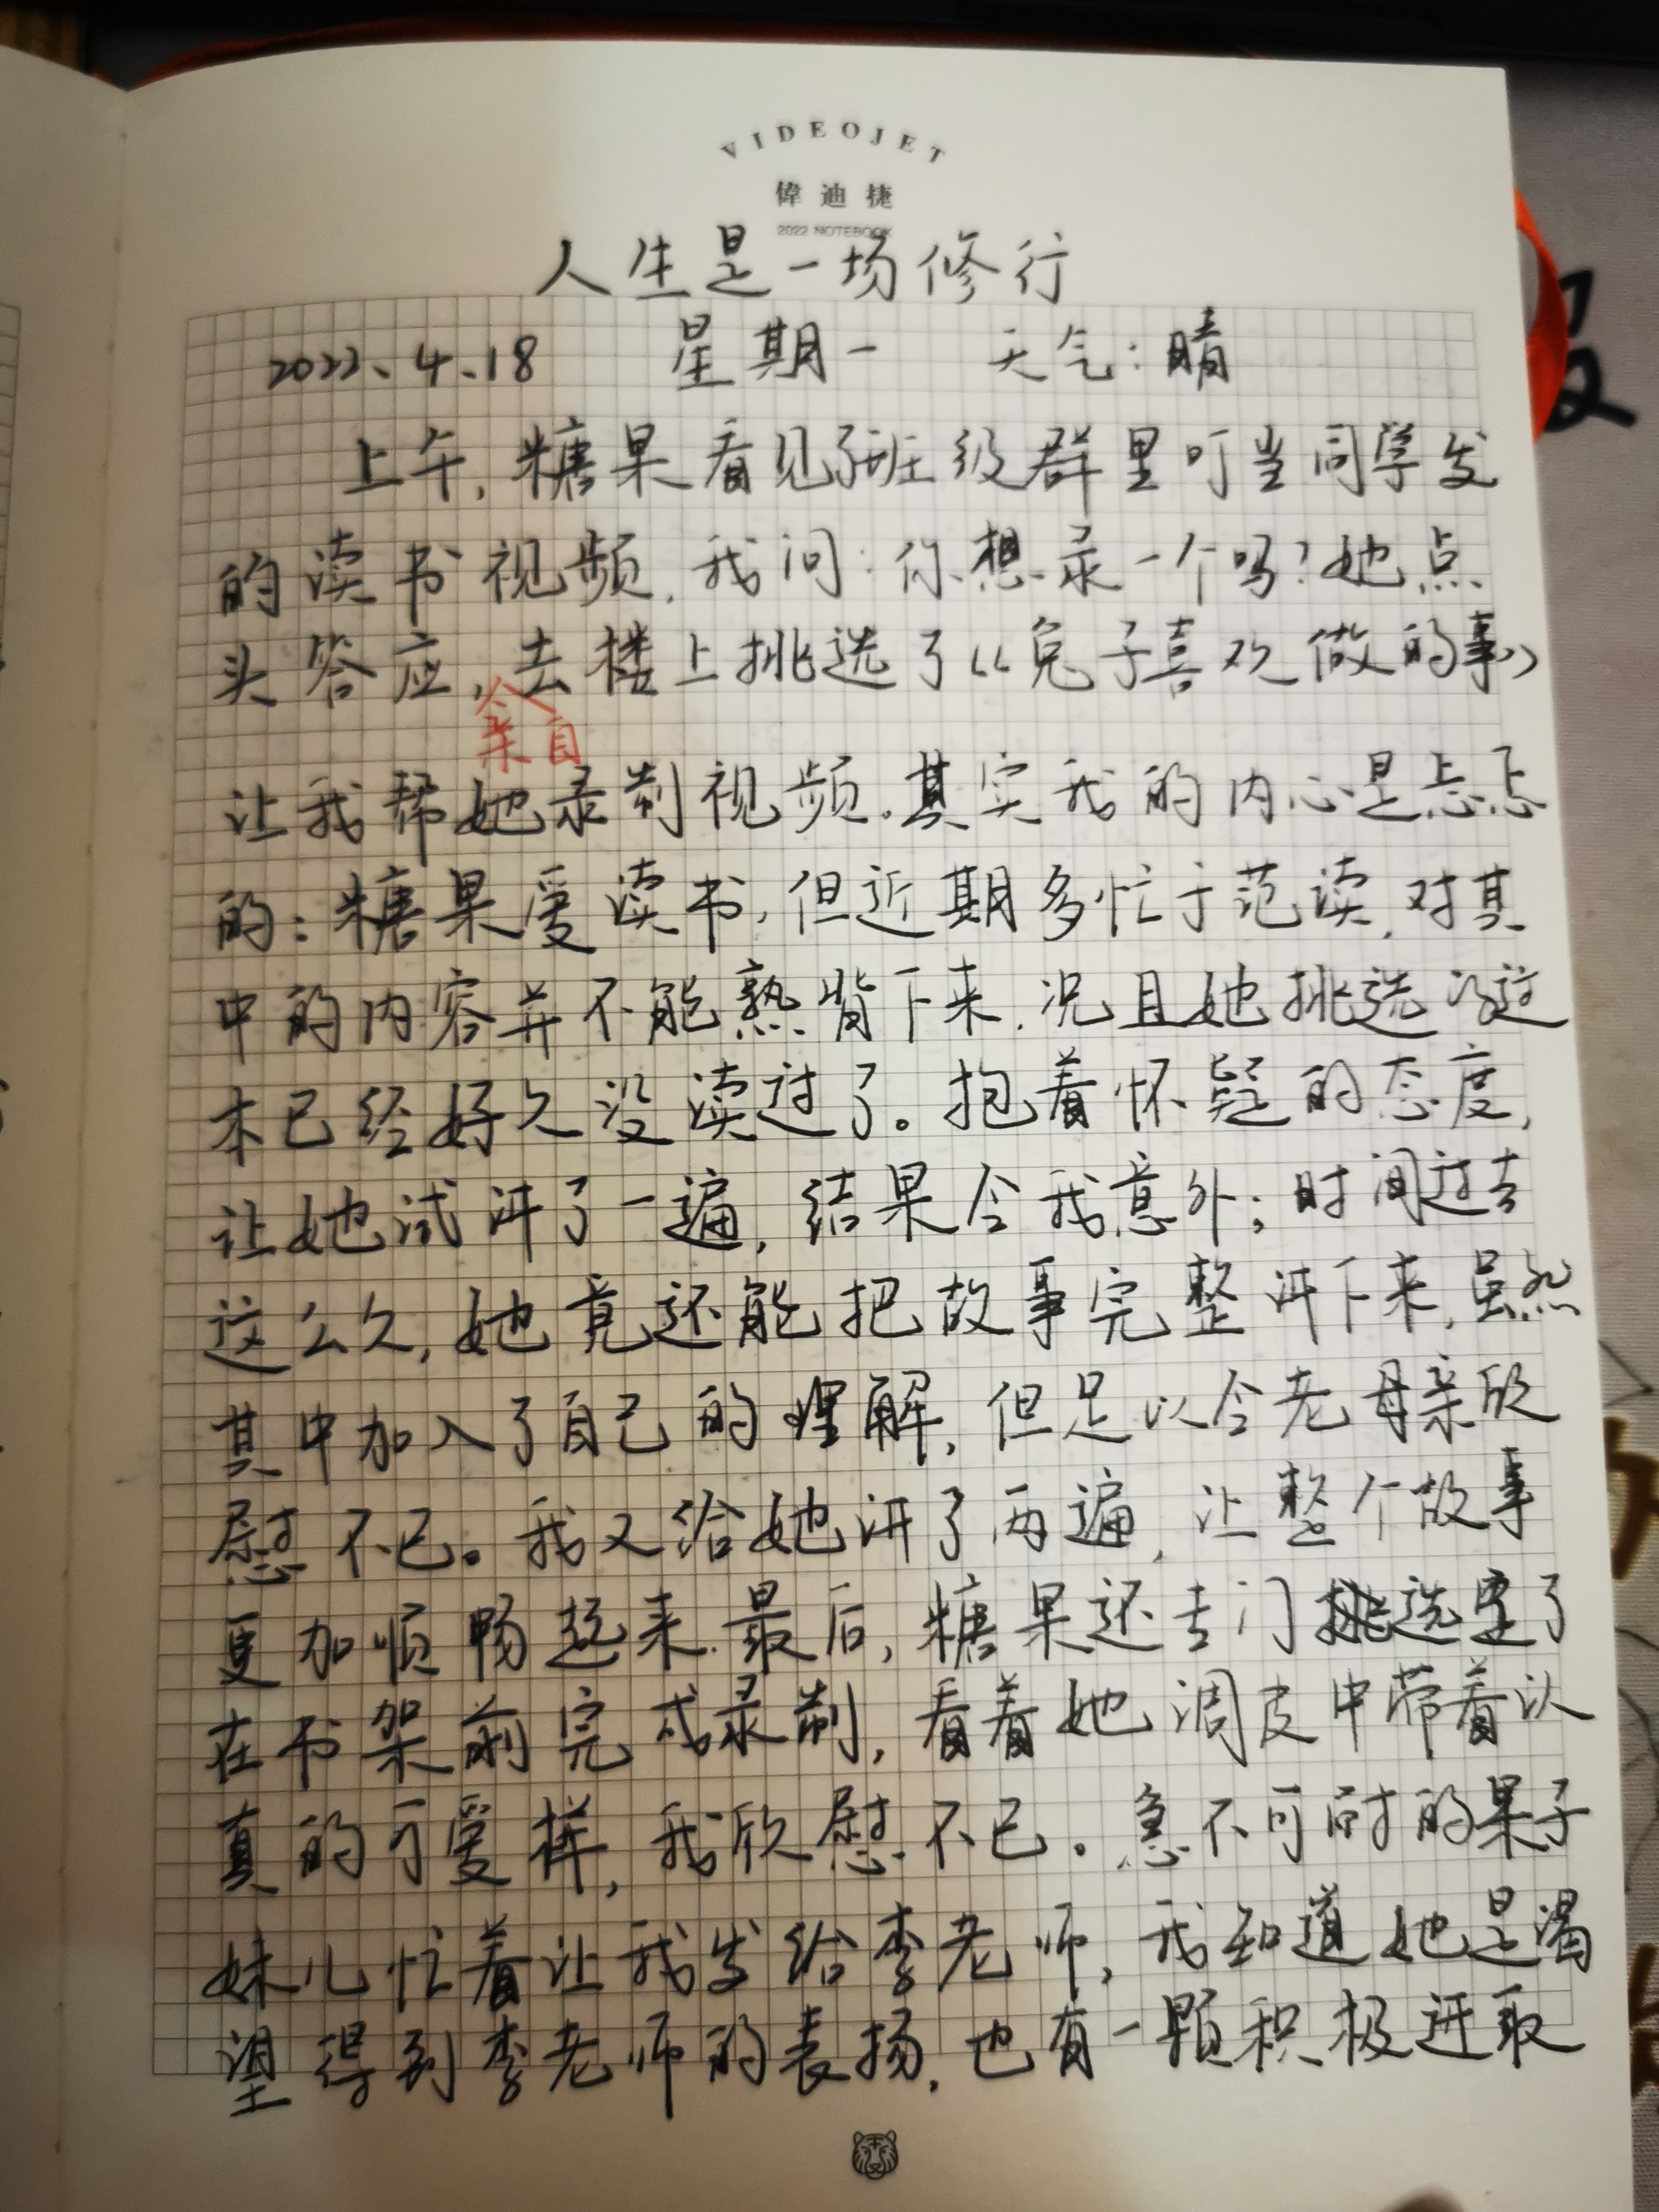 VIDEOJET
偉迪捷
2022 NOTEBOOK
人生是一场修行
2022、4、18 星期一 天气：晴
上午，糖果看见了班级群里叮当同学发
的读书视频，我问：你想录一个吗？她点
头答应，去楼上挑选了《兔子喜欢做的事》
让我帮她录制视频。其实我的内心是忐忑
的：糖果爱读书，但近期多忙于范读，对其
中的内容并不能熟背下来，况且她挑选的这
本已经好久没读过了。抱着怀疑的态度，
让她试讲了一遍，结果令我意外；时间过去
这么久，她竟还能把故事完整讲下来，虽然
其中加入了自己的理解，但足以令老母亲欣
慰不已。我又给她讲了两遍，让整个故事
更加顺畅起来。最后，糖果还专门挑选定了
在书架前完成录制，看着她调皮中带着认
真的可爱样，我欣慰不已。急不可耐的果子
妹儿忙着让我发给李老师，我知道她是渴
望得到李老师的表扬，也有一颗积极进取